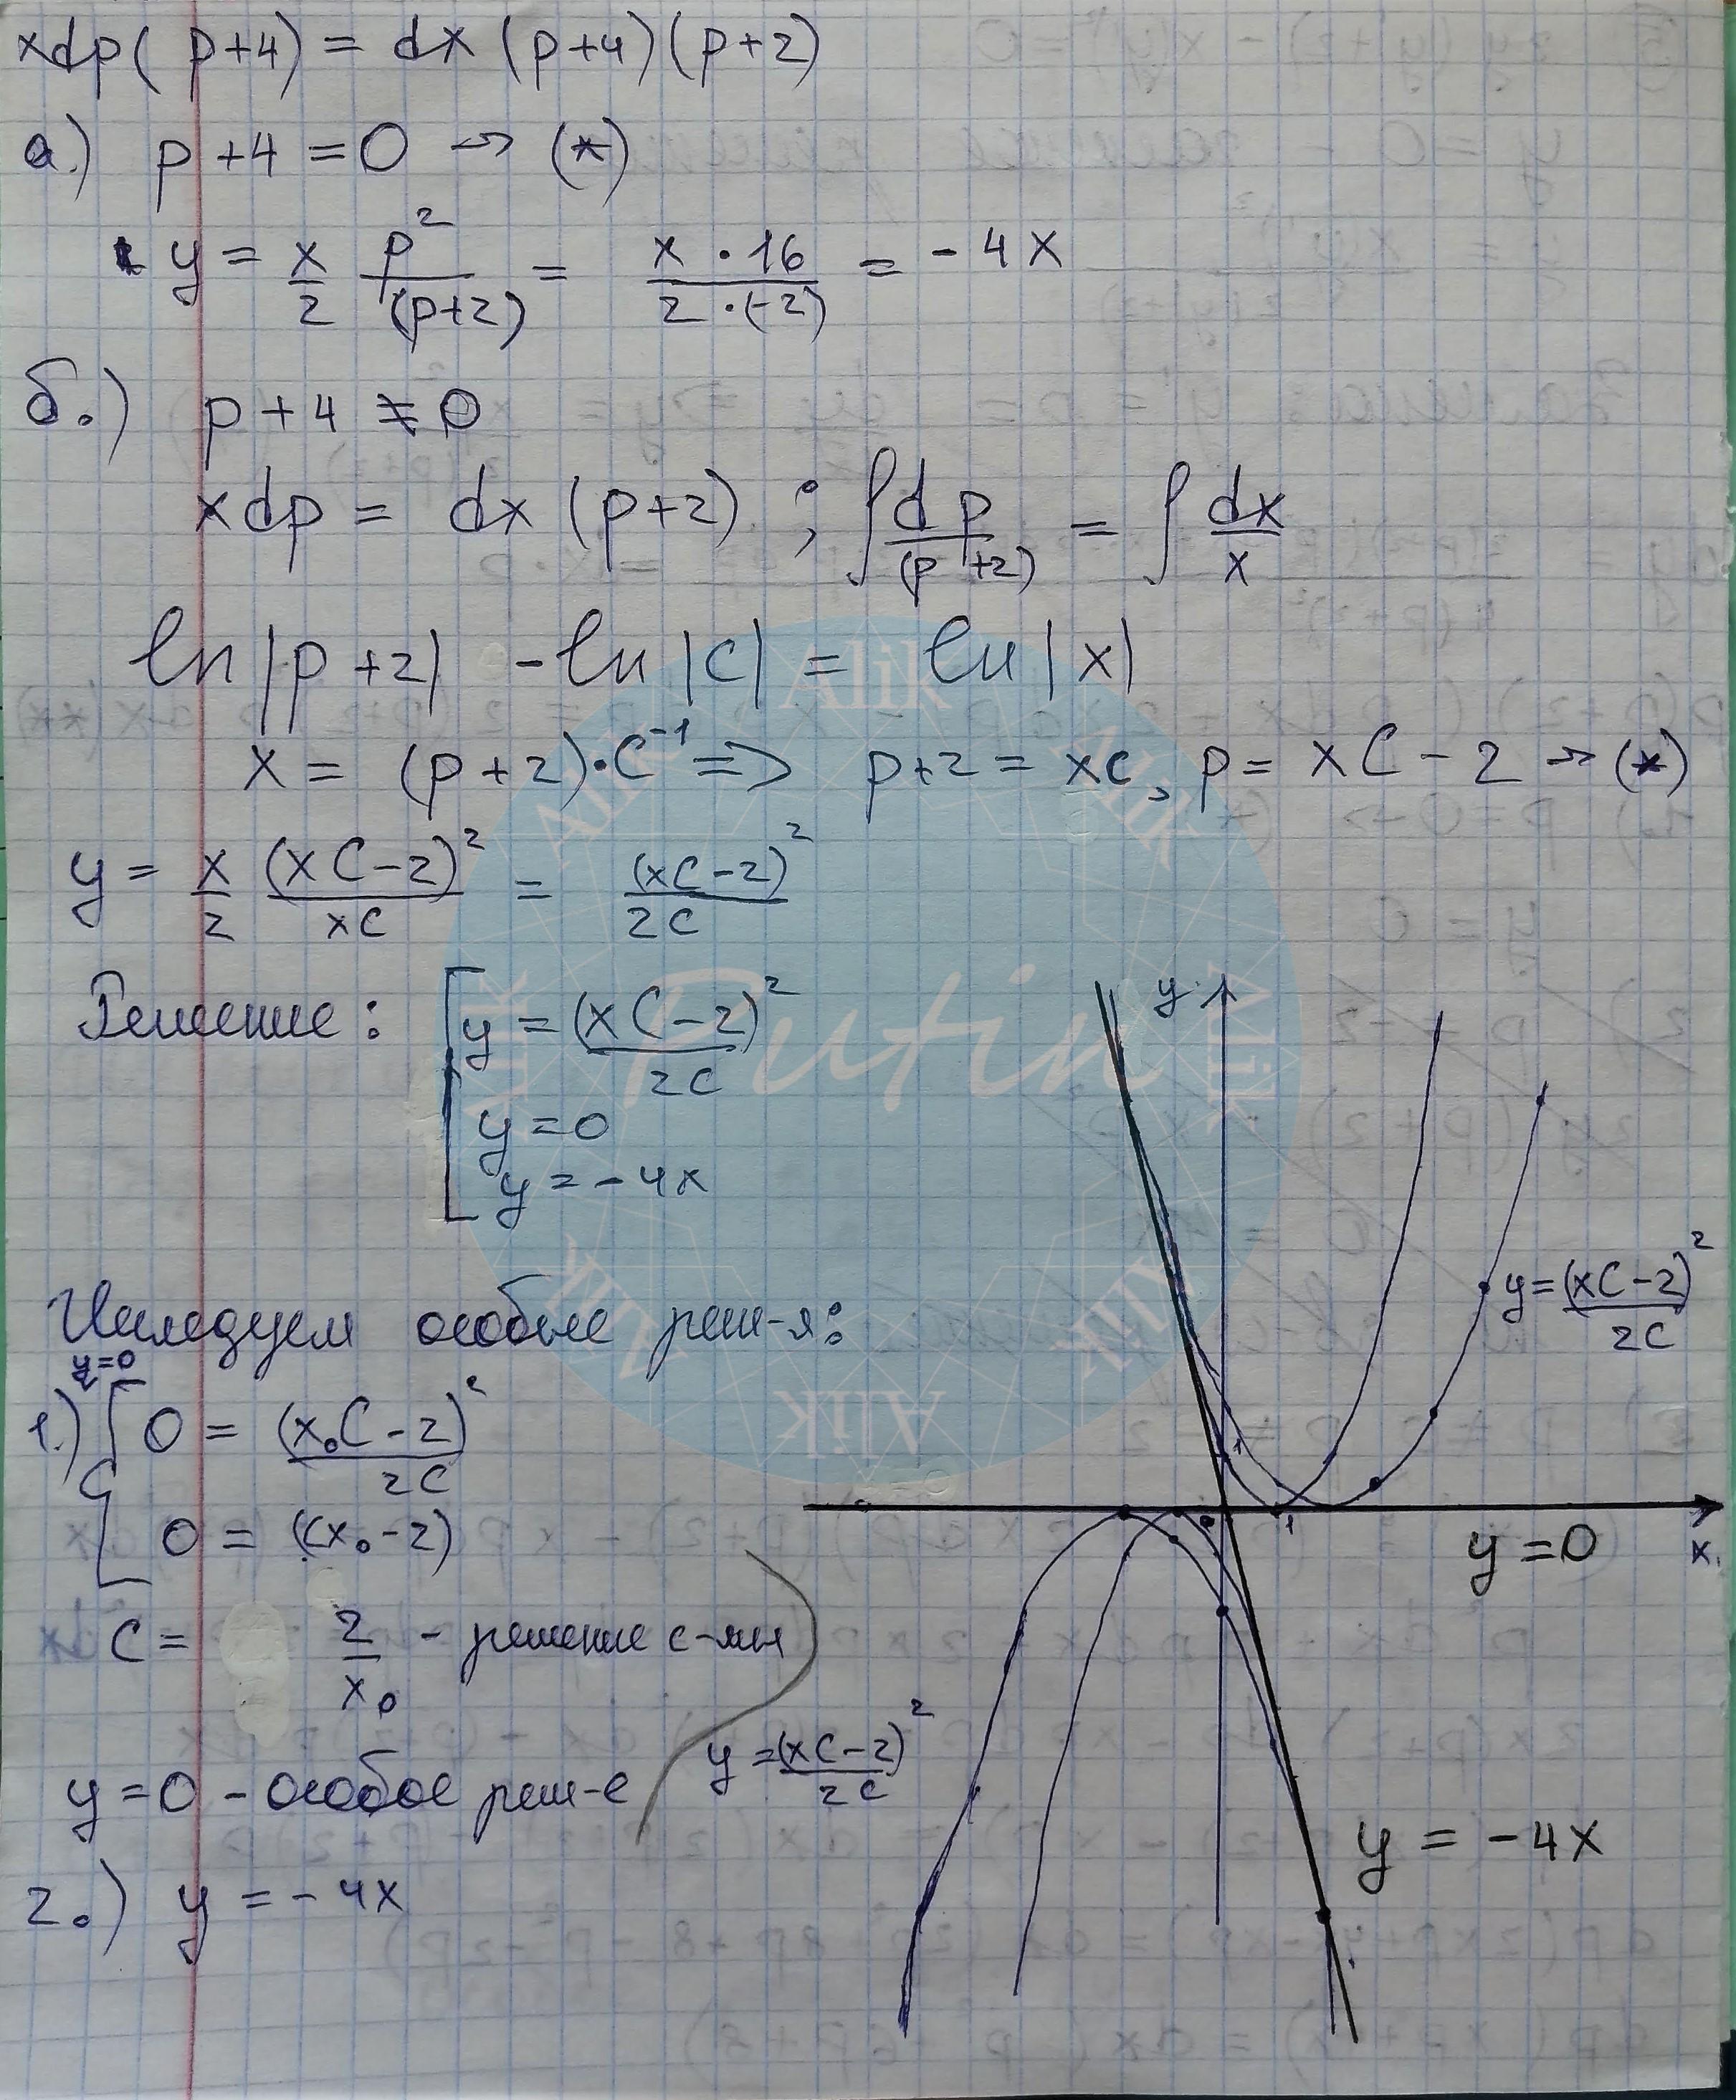 xdp(p+4) = dx(p+4)(p+2)
а.) p+4=0 → (*)
y = x/2 p²/(p+2) = x·16/2·(-2) = -4x
б.) p+4≠0
xdp = dx(p+2) ; ∫dp/(p+2) = ∫dx/x
ln|p+2| - ln|C| = ln|x|
x = (p+2)·C⁻¹ => p+2 = xC, p = xC-2 → (*)
y = x/2 (xC-2)²/xC = (xC-2)²/2C
Решение: [ y = (xC-2)²/2C
y=0
y=-4x
Исследуем особые реш-я:
y=0
1.) { 0 = (x₀C-2)²/2C
0 = (Cx₀-2)
C = 2/x₀ - решение с-мы
y=0 - особое реш-е
2.) y = -4x
y
y=(xC-2)²/2C
1
0
1
y=0
x
y=(xC-2)²/2C
y = -4x
Alik
Alik
Alik
Alik
Alik
Alik
Alik
Alik
Putin